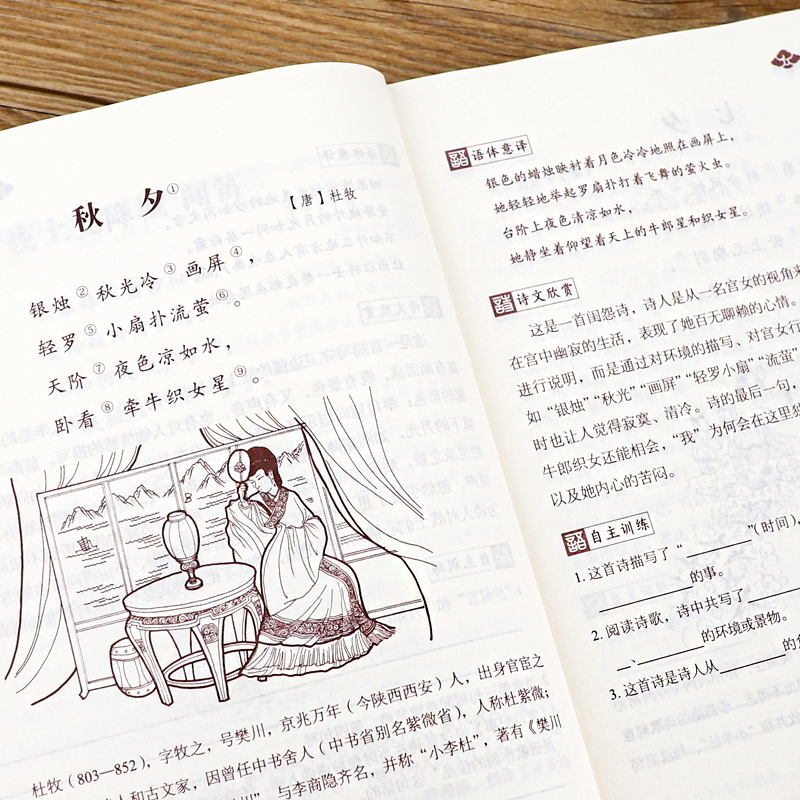 秋 夕①
【唐】杜牧
银烛②秋光冷③画屏④，
轻罗⑤小扇扑流萤⑥。
天阶⑦夜色凉如水，
卧看⑧牵牛织女星⑨。
杜牧（803—852），字牧之，号樊川，京兆万年（今陕西西安）人，出身官宦之
人和古文家，因曾任中书舍人（中书省别名紫微省），人称杜紫微；
”与李商隐齐名，并称“小李杜”，著有《樊川
语体意译
银色的蜡烛映衬着月色冷冷地照在画屏上，
她轻轻地举起罗扇扑打着飞舞的萤火虫。
台阶上夜色清凉如水，
她静坐着仰望着天上的牛郎星和织女星。
诗文欣赏
这是一首闺怨诗，诗人是从一名宫女的视角来
在宫中幽寂的生活，表现了她百无聊赖的心情。
进行说明，而是通过对环境的描写、对宫女行
如“银烛”“秋光”“画屏”“轻罗小扇”“流萤”
时也让人觉得寂寞、清冷。诗的最后一句，
牛郎织女还能相会，“我”为何会在这里独
以及她内心的苦闷。
自主训练
1. 这首诗描写了“________”（时间），
________的事。
2. 阅读诗歌，诗中共写了________
、________的环境或景物。
3. 这首诗是诗人从________的